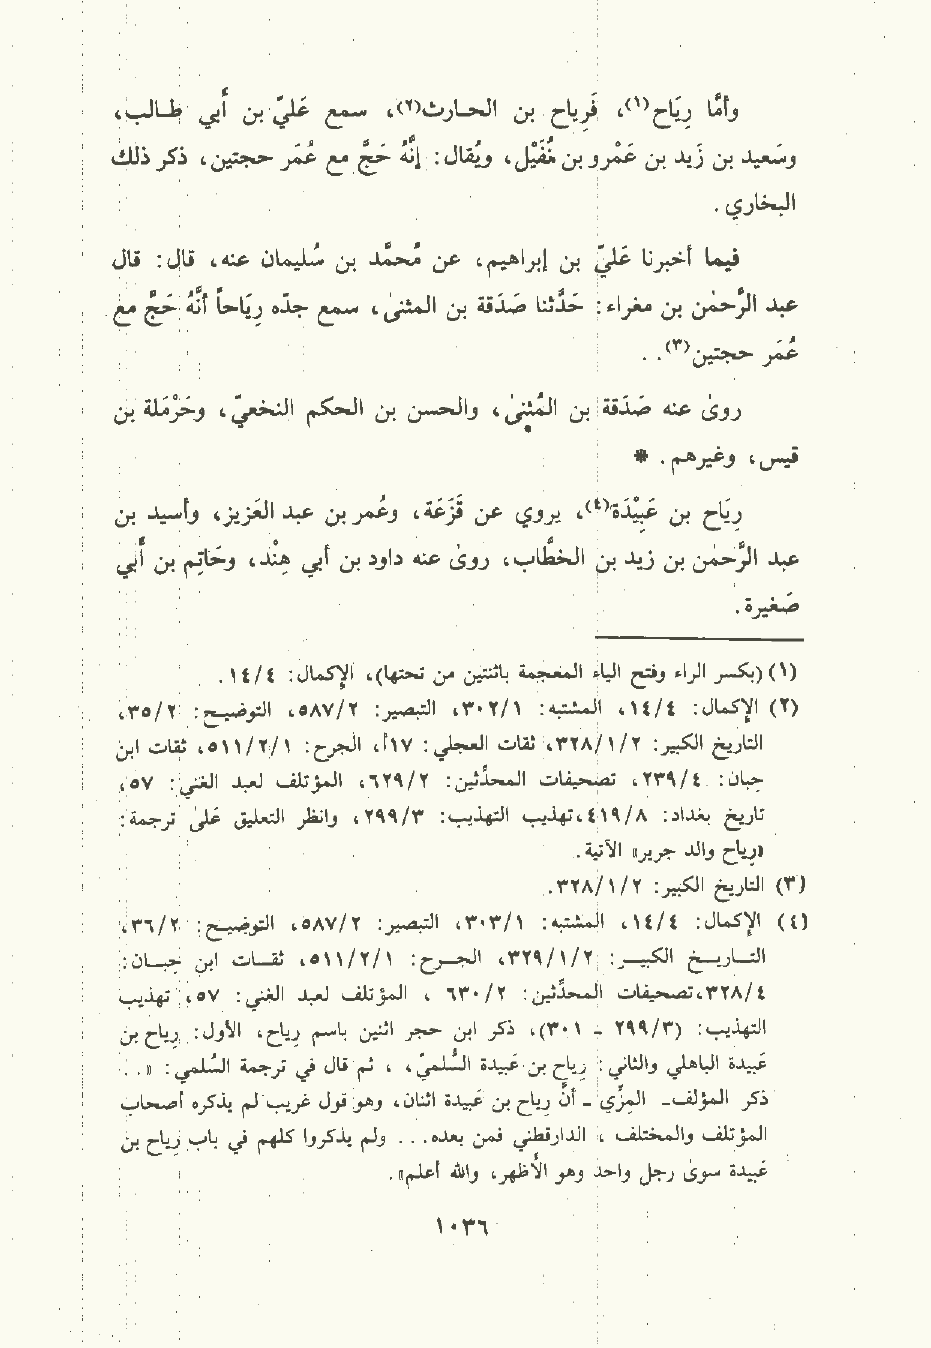 وأمَّا رِيَاح(١)، فَرِياح بن الحـارث(٢)، سمع عَليَّ بن أبي طـالـب،
وسَعيد بن زَيد بن عَمْرو بن نُفَيْل، ويُقال: إنَّهُ حَجَّ مع عُمَر حجتين، ذكر ذلك
البخاري.
فيما أخبرنا عَليّ بن إبراهيم، عن مُحمَّد بن سُليمان عنه، قال: قال
عبد الرَّحمٰن بن مغراء: حَدَّثنا صَدَقة بن المثنىٰ، سمع جدّه رِيَاحاً أنَّهُ حَجَّ مع
عُمَر حجتين(٣). .
روىٰ عنه صَدَقة بن المُثنىٰ، والحسن بن الحكم النخعيّ، وحَرْمَلة بن
قيس، وغيرهم. *
رِيَاح بن عَبِيْدَة(٤)، يروي عن قَزَعَة، وعُمر بن عبد العَزيز، وأسيد بن
عبد الرَّحمٰن بن زيد بن الخطَّاب، روىٰ عنه داود بن أبي هِنْد، وحَاتِم بن أبي
صَغيرة.
(١) (بكسر الراء وفتح الياء المعجمة باثنتين من تحتها)، الإكمال: ١٤/٤.
(٢) الإكمال: ١٤/٤، المشتبه: ٣٠٢/١، التبصير: ٥٨٧/٢، التوضيـح: ٣٥/٢،
التاريخ الكبير: ٣٢٨/١/٢، ثقات العجلي: ١٧أ، الجرح: ٥١١/٢/١، ثقات ابن
حِبان: ٢٣٩/٤، تصحيفات المحدِّثين: ٦٢٩/٢، المؤتلف لعبد الغني: ٥٧،
تاريخ بغداد: ٤١٩/٨،تهذيب التهذيب: ٢٩٩/٣، وانظر التعليق عَلىٰ ترجمة:
«رِياح والد جرير» الآتية.
(٣) التاريخ الكبير: ٣٢٨/١/٢.
(٤) الإكمال: ١٤/٤، المشتبه: ٣٠٣/١، التبصير: ٥٨٧/٢، التوضيـح: ٣٦/٢،
التـاريـخ الكبيـر: ٣٢٩/١/٢، الجـرح: ٥١١/٢/١، ثقـات ابن حِبـان:
٣٢٨/٤،تصحيفات المحدِّثين: ٦٣٠/٢ ، المؤتلف لعبد الغني: ٥٧، تهذيب
التهذيب: (٢٩٩/٣ - ٣٠١)، ذكر ابن حجر اثنين باسم رياح، الأول: رِياح بن
عَبيدة الباهلي والثاني: رِياح بن عَبيدة السُّلميّ، ، ثم قال في ترجمة السُّلمي: «. .
ذكر المؤلف- المِزِّي - أنَّ رياح بن عَبيدة اثنان، وهو قول غريب لم يذكره أصحاب
المؤتلف والمختلف ، الدارقطني فمن بعده. . . ولم يذكروا كلهم في باب رِياح بن
عَبيدة سوىٰ رجل واحد وهو الأظهر، والله أعلم».
١٠٣٦